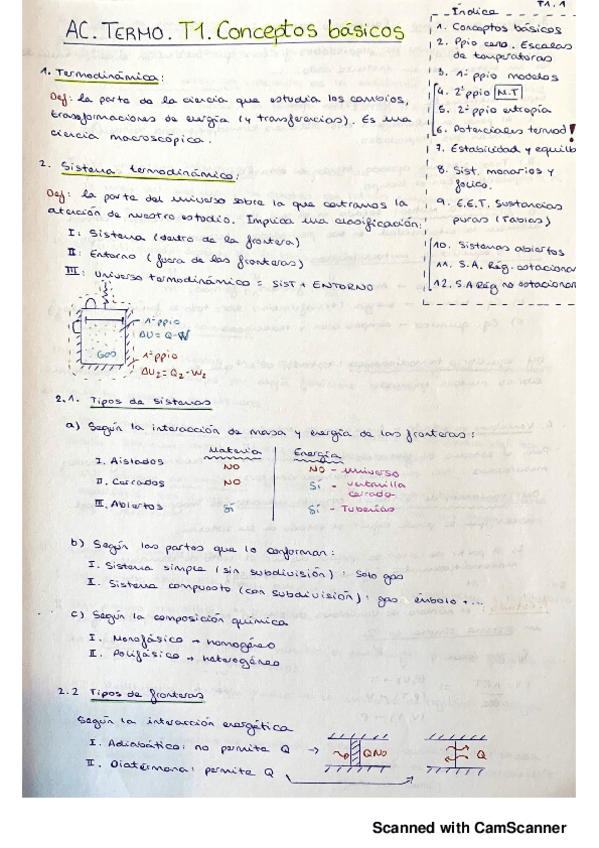 T1.1
AC. TERMO. T1. Conceptos básicos
Índice
1. Conceptos básicos
2. Ppio cero. Escalas
de temperaturas
3. 1er ppio modelos
4. 2º ppio M.T
5. 2º ppio entropía
6. Potenciales termod!
7. Estabilidad y equilib
8. Sist. monarios y
9. E.E.T. Sustancias
puras (Tablas)
10. Sistemas abiertos
11. S.A. Rég. estacionar
12. S.A Rég no estacionar
1. Termodinámica:
Def: la parte de la ciencia que estudia los cambios,
transformaciones de energía (y transferencias). Es una
ciencia macroscópica.
2. Sistema termodinámico:
Def: la parte del universo sobre la que centramos la
atención de nuestro estudio. Implica una clasificación:
I: Sistema (dentro de la frontera)
II: Entorno (fuera de las fronteras)
III: Universo termodinámico = SIST + ENTORNO
1er ppio
ΔU = Q-W
Gas
1er ppio
ΔU2 = Q2 - W2
2.1. Tipos de sistemas
a) Según la interacción de masa y energía de las fronteras:
Materia Energía
I. Aislados NO NO - universo
II. Cerrados NO SÍ - ventanilla
cerrada
III. Abiertos SÍ SÍ - Tuberías
b) Según las partes que lo conforman:
I. Sistema simple (sin subdivisión): Solo gas
II. Sistema compuesto (con subdivisión): gas émbolo +...
c) Según la composición química
I. Monofásico → homogéneo
II. Polifásico → heterogéneo
2.2 Tipos de fronteras
Según la interacción energética
I. Adiabática: no permite Q → Q NO
II. Diatérmana: permite Q Q
Scanned with CamScanner